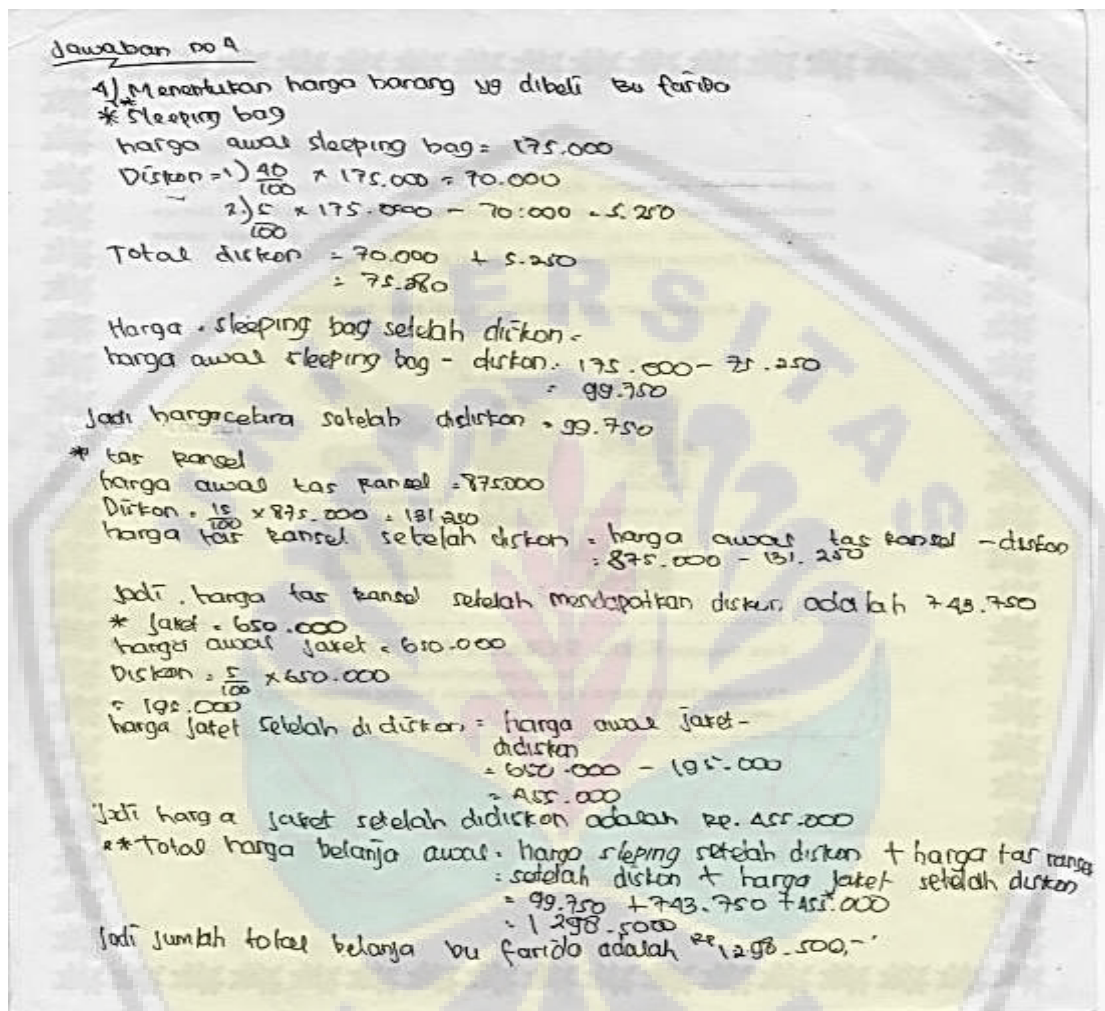 Jawaban no 4
4) Menentukan harga barang yg dibeli Bu farido
* Sleeping bag
harga awal sleeping bag = 175.000
Diskon = 1) 40/100 x 175.000 = 70.000
2) 5/100 x 175.000 - 70.000 = 5.250
Total diskon = 70.000 + 5.250
= 75.280
Harga sleeping bag setelah diskon =
harga awal sleeping bag - diskon = 175.000 - 75.250
= 99.750
Jadi harga celara setelah didiskon = 99.750
* tas ransel
harga awal tas ransel = 875.000
Diskon = 15/100 x 875.000 = 131.250
harga tas ransel setelah diskon = harga awal tas ransel - diskon
= 875.000 - 131.250
Jadi harga tas ransel setelah mendapatkan diskon adalah 743.750
* Jaket = 650.000
harga awal jaket = 650.000
Diskon = 5/100 x 650.000
= 195.000
harga jaket setelah di diskon = harga awal jaket -
didiskon
= 650.000 - 195.000
= 455.000
Jadi harga jaket setelah didiskon adalah RP. 455.000
** Total harga belanja awal = harga sleping setelah diskon + harga tas ransel
= setelah diskon + harga jaket setelah diskon
= 99.750 + 743.750 + 455.000
= 1 298.5000
Jadi jumlah total belanja bu farido adalah RP 1298.500,-
UNIVERSITAS